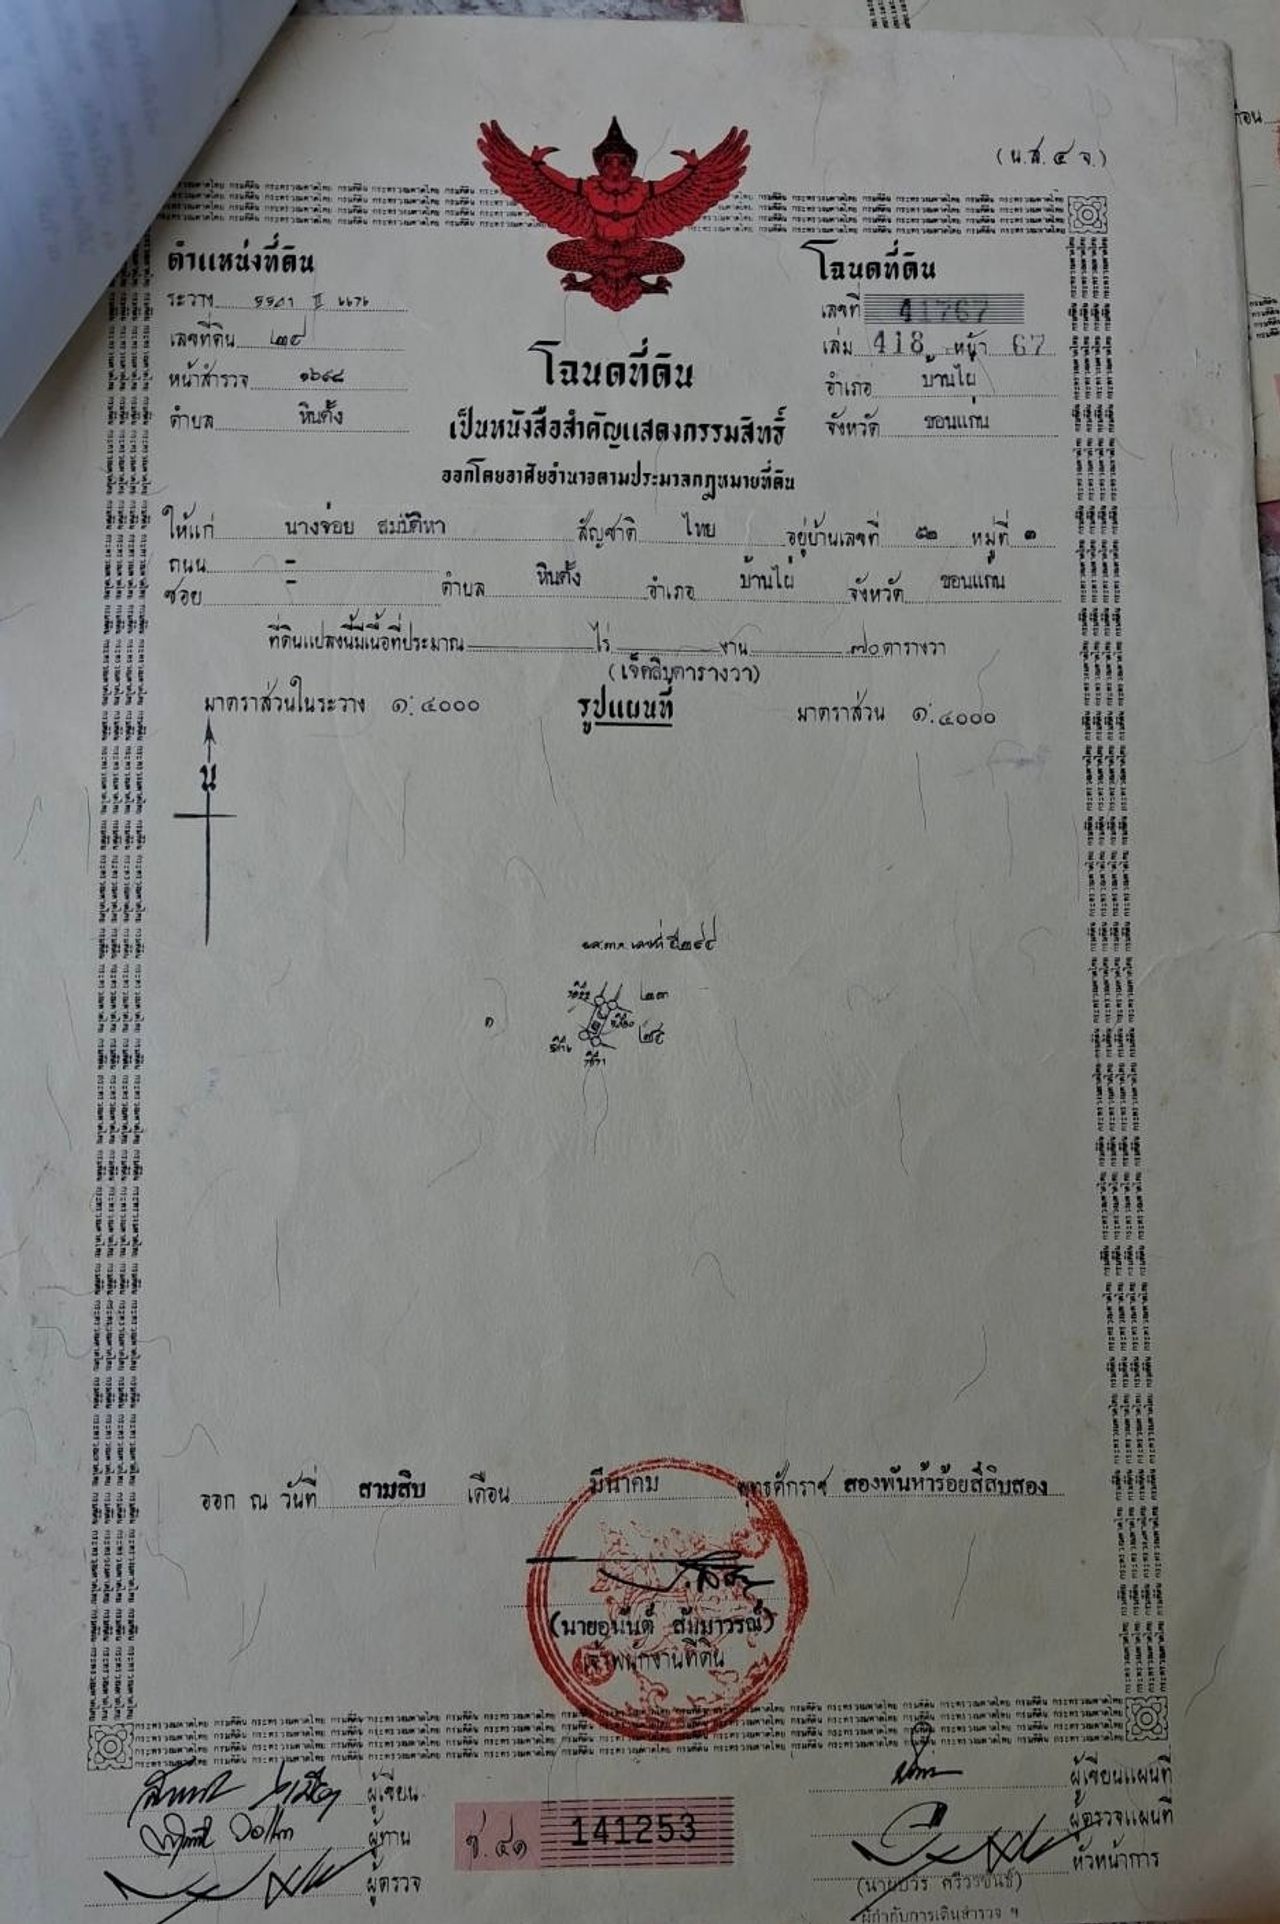 (น.ส.๔ จ.)
ตำแหน่งที่ดิน
โฉนดที่ดิน
ระวาง
เลขที่ 41767
เลขที่ดิน
เล่ม 418 หน้า 67
หน้าสำรวจ ๑๖๙๘
อำเภอ บ้านไผ่
ตำบล หินตั้ง
จังหวัด ขอนแก่น
โฉนดที่ดิน
เป็นหนังสือสำคัญแสดงกรรมสิทธิ์
ออกโดยอาศัยอำนาจตามประมวลกฎหมายที่ดิน
ให้แก่ นางจ่อย สมบัติหา สัญชาติ ไทย อยู่บ้านเลขที่ ๕๒ หมู่ที่ ๑
ถนน -
ซอย - ตำบล หินตั้ง อำเภอ บ้านไผ่ จังหวัด ขอนแก่น
ที่ดินแปลงนี้มีเนื้อที่ประมาณ ไร่ งาน ๗๐ ตารางวา
(เจ็ดสิบตารางวา)
มาตราส่วนในระวาง ๑:๔๐๐๐ รูปแผนที่ มาตราส่วน ๑:๔๐๐๐
น
๒๓
๑
ออก ณ วันที่ สามสิบ เดือน มีนาคม พุทธศักราช สองพันห้าร้อยสี่สิบสอง
(นายอนันต์ สัมมาวรณ์)
เจ้าพนักงานที่ดิน
ผู้เขียน
ผู้เขียนแผนที่
ผู้ทาน
ผู้ตรวจแผนที่
ช.๔๑ 141253
ผู้ตรวจ
หัวหน้าการ
ผู้กำกับการเดินสำรวจ ฯ